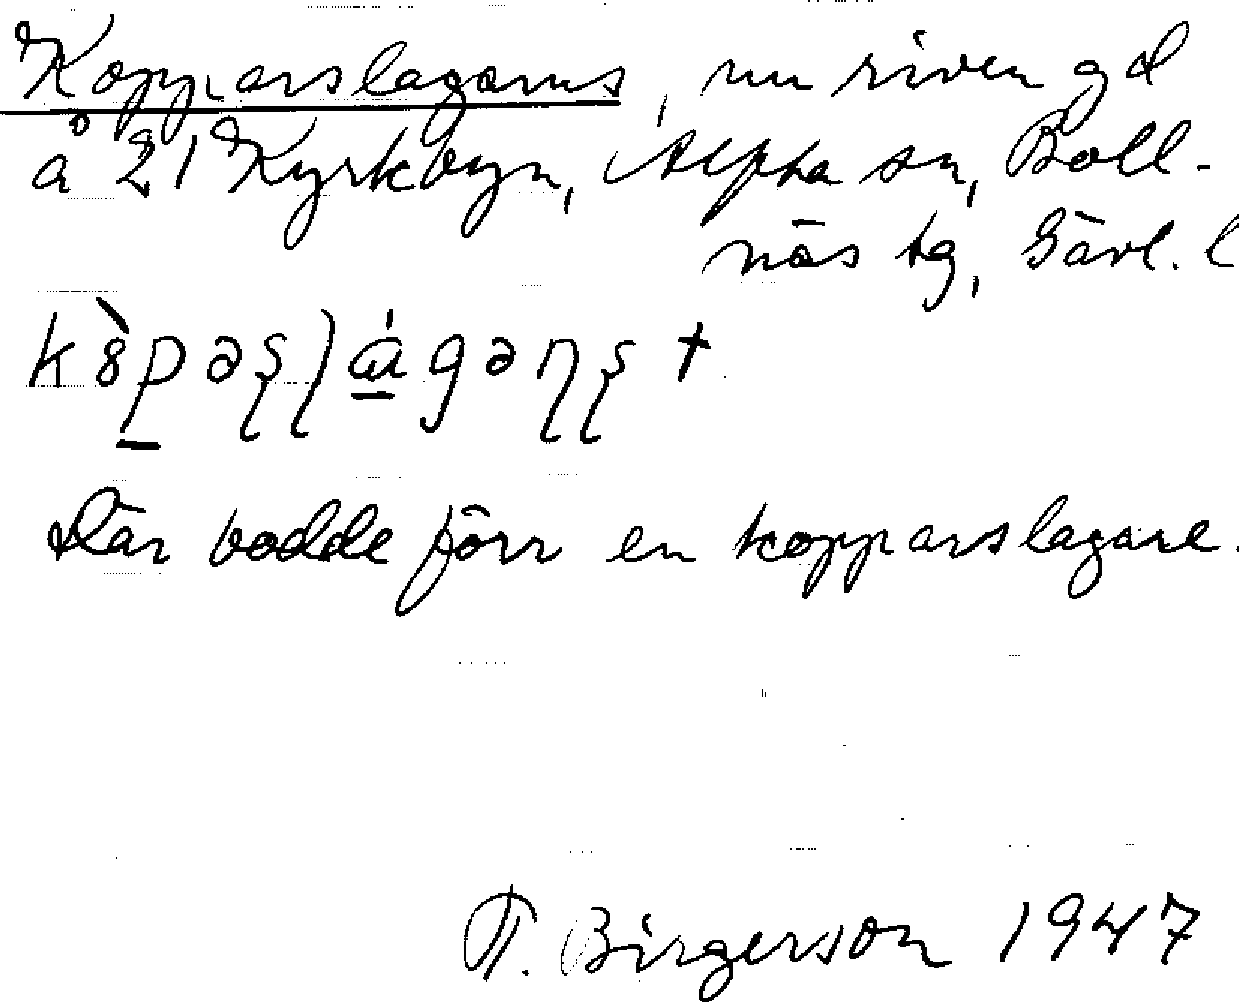 Kopparslagarns, nu riven gd
å 21 Kyrkbyn, Alfta sn, Boll-
näs tg, Gävl. l
Där bodde förr en kopparslagare.
T. Birgerson 1947